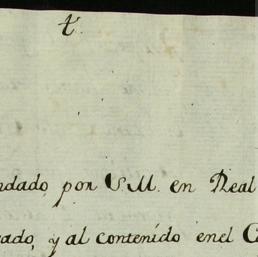 t.
ndado, por S.M. en Real
ado, y al contenido enel C